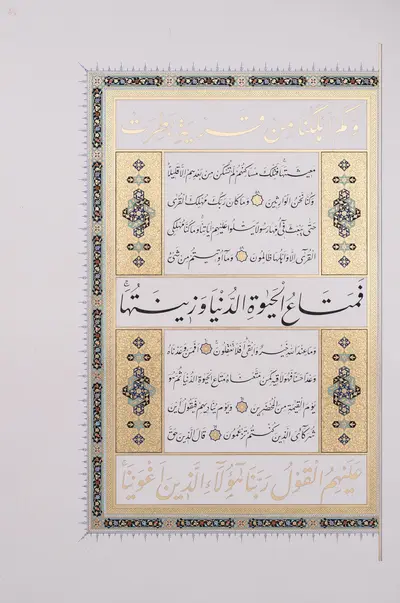 وكم أهلكنا من قرية بطرت
معيشتها فتلك مساكنهم لم تسكن من بعدهم إلا قليلا
وكنا نحن الوارثين وما كان ربك مهلك القرى
حتى يبعث في أمها رسولا يتلوا عليهم آياتنا وما كنا مهلكي
القرى إلا وأهلها ظالمون وما أوتيتم من شيء
فَمَتاعُ الْحَيٰوةِ الدُّنْيا وَزينَتُها
وما عند الله خير وأبقى أفلا تعقلون أفمن وعدناه
وعدا حسنا فهو لاقيه كمن متعناه متاع الحيوة الدنيا ثم هو
يوم القيمة من المحضرين ويوم يناديهم فيقول أين
شركائي الذين كنتم تزعمون قال الذين حق
عَلَيْهِمُ الْقَوْلُ رَبَّنا هٰؤُلاءِ الَّذينَ أَغْوَيْنا